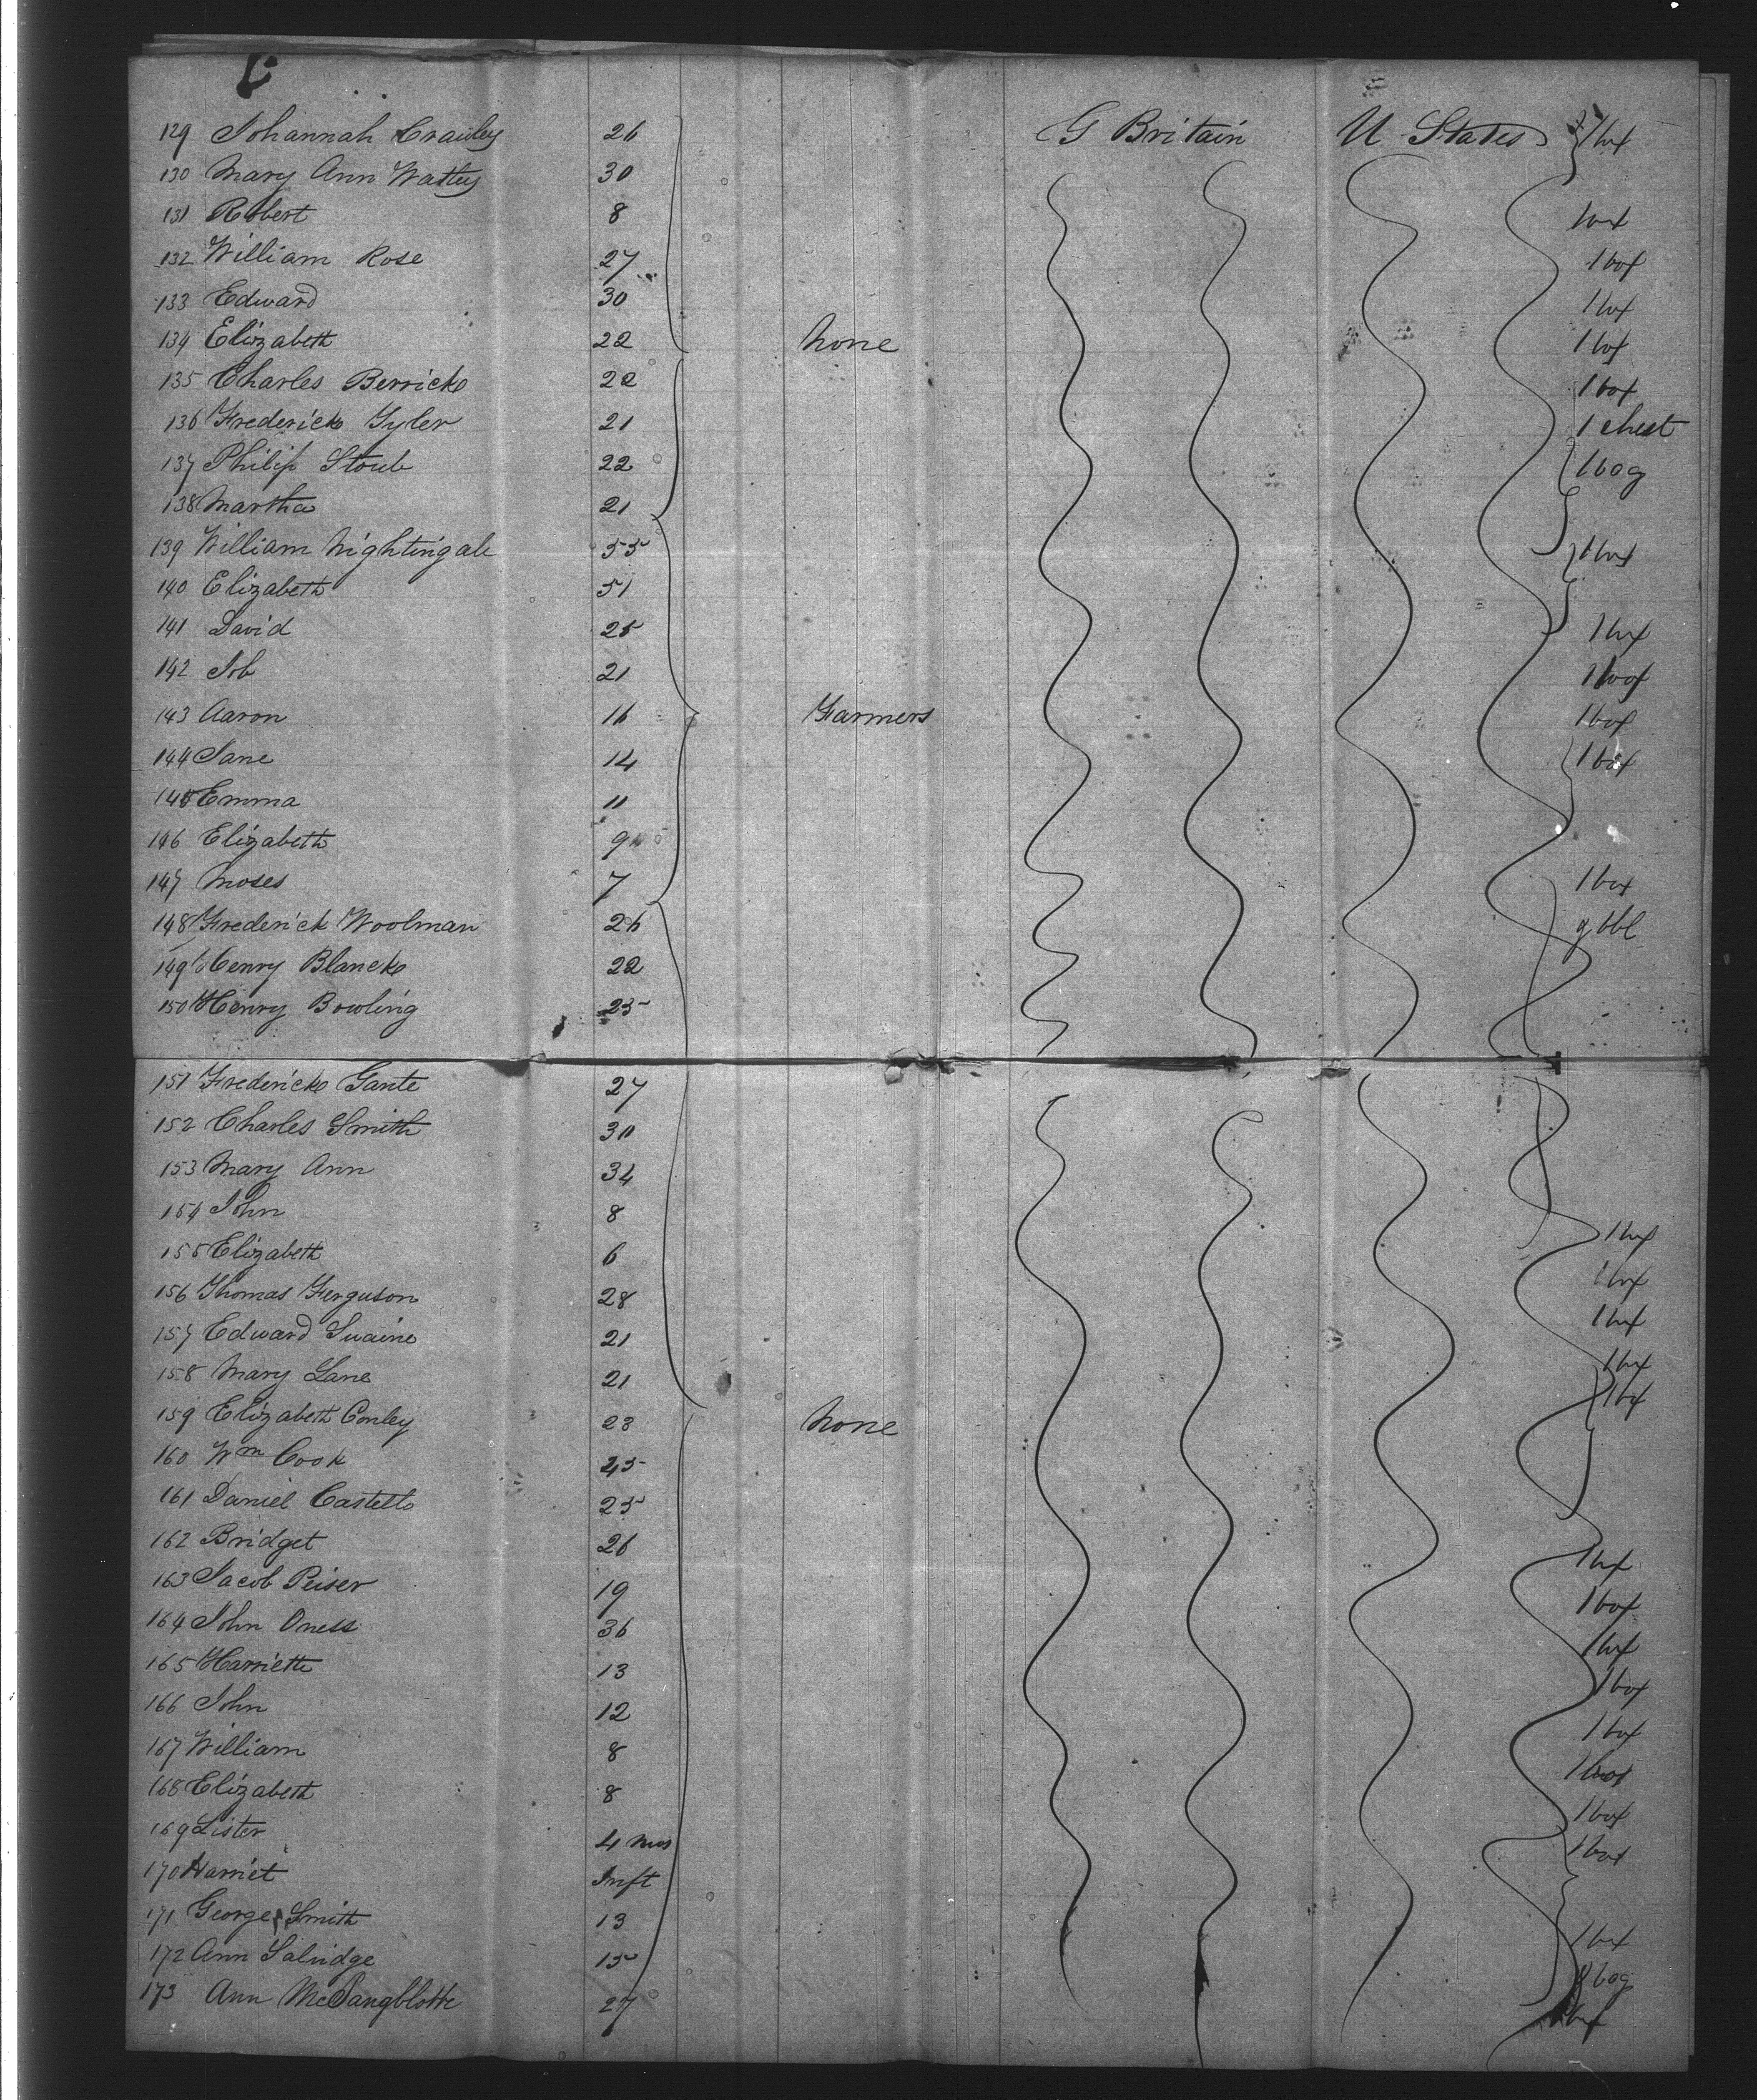 129 Johannah Crawley 26 G Britain U States 1 box
130 Mary Ann Wattey 30
131 Robert 8 1 box
132 William Rose 27 1 box
133 Edward 30 1 box
134 Elizabeth 22 None 1 box
135 Charles Berrick 22 1 box
136 Frederick Tyler 21 1 chest
137 Philip Stoub 22 1 bag
138 Martha 21
139 William Nightingale 55 1 box
140 Elizabeth 51
141 David 25 1 box
142 Job 21 1 box
143 Aaron 16 Farmers 1 box
144 Jane 14 1 box
145 Emma 11
146 Elizabeth 9
147 Moses 7 1 box
148 Frederick Woolman 26 bbl
149 Henry Blanck 22
150 Henry Bowling 25
151 Frederick Gante 27
152 Charles Smith 30
153 Mary Ann 34
154 John 8
155 Elizabeth 6 1 box
156 Thomas Ferguson 28 1 box
157 Edward Swaine 21 1 box
158 Mary Lane 21 1 box
159 Elizabeth Conley 23 None 1 box
160 Wm Cook 25
161 Daniel Castello 25
162 Bridget 26 1 box
163 Jacob Peiser 19 1 box
164 John Oness 36 1 box
165 Harriett 13 1 box
166 John 12 1 box
167 William 8 1 box
168 Elizabeth 8 1 box
169 Lister 4 mos 1 box
170 Harriet Inft
171 George Smith 13 1 box
172 Ann Salridge 15 bag
173 Ann 27 box